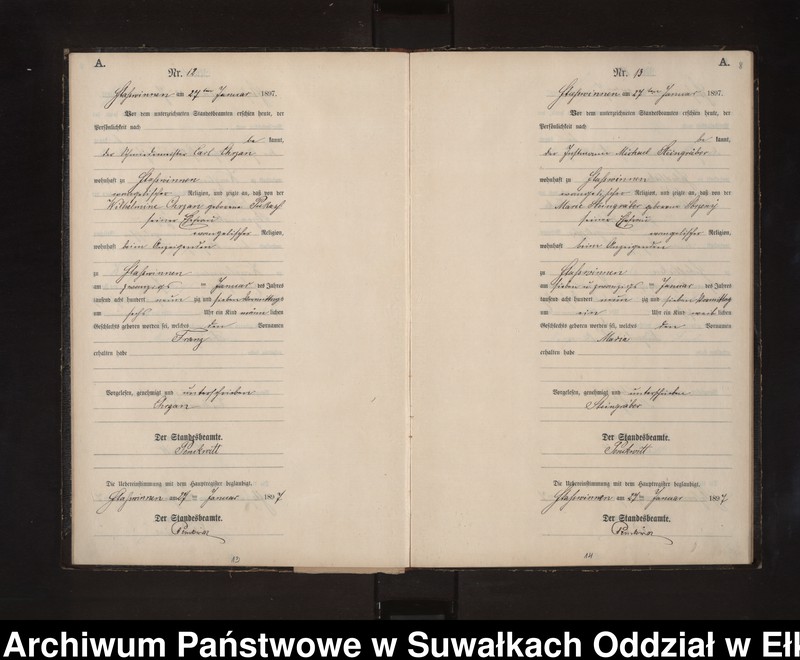 A.
Nr. 12
am 27ten Januar 1897.
Vor dem unterzeichneten Standesbeamten erschien heute, der
Persönlichkeit nach
be kannt,
der Schmiedemeister Carl
wohnhaft zu
evangelischer Religion, und zeigte an, daß von der
Wilhelmine geborene
seiner Ehefrau
evangelischer Religion,
wohnhaft beim Anzeigenden
zu
am ten Januar des Jahres
tausend acht hundert neun zig und sieben Vormittags
um sechs Uhr ein Kind männ lichen
Geschlechts geboren worden sei, welches den Vornamen
Franz
erhalten habe
Vorgelesen, genehmigt und unterschrieben
Der Standesbeamte.
Die Uebereinstimmung mit dem Hauptregister beglaubigt.
am 27ten Januar 1897
Der Standesbeamte.
13
A.
Nr. 13
am 27ten Januar 1897.
Vor dem unterzeichneten Standesbeamten erschien heute, der
Persönlichkeit nach
be kannt,
der Instmann Michael Steingräber
wohnhaft zu
evangelischer Religion, und zeigte an, daß von der
Marie Steingräber geborene
seiner Ehefrau
evangelischer Religion,
wohnhaft beim Anzeigenden
zu
am ten Januar des Jahres
tausend acht hundert neun zig und sieben Vormittag
um ein Uhr ein Kind weib lichen
Geschlechts geboren worden sei, welches den Vornamen
Maria
erhalten habe
Vorgelesen, genehmigt und unterschrieben
Steingräber
Der Standesbeamte.
Die Uebereinstimmung mit dem Hauptregister beglaubigt.
am 27ten Januar 1897
Der Standesbeamte.
14
Archiwum Państwowe w Suwałkach Oddział w Eł